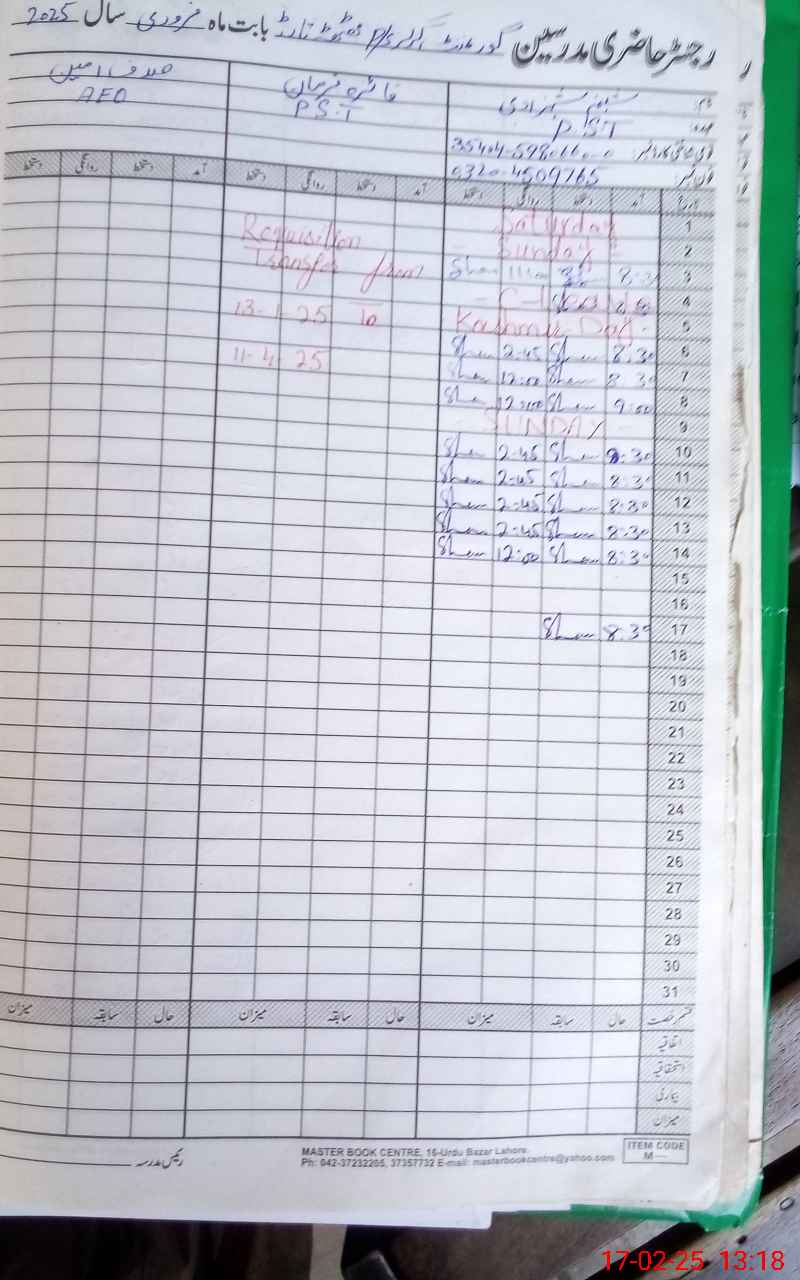 رجسٹر حاضری مدرسین گورنمنٹ بابت ماہ فروری سال 2025
نام: شبنم شہزادی
P.S.T
0320-4509765
فائزہ
P.S.T
صدف امین
AEO
تاریخ آمد دستخط روانگی دستخط آمد دستخط روانگی دستخط آمد دستخط روانگی دستخط
1 Saturday
2 Sunday
3
4
5 Kashmir Day
6 8:30 Shan 2-45 Shan
7 8:30 Shan 12:00 Shan
8 9:00 Shan 12:00 Shan
9 SUNDAY
10 8:30 Shan 2-45 Shan
11 8:30 Shan 2-45 Shan
12 8:30 Shan 2-45 Shan
13 8:30 Shan 2-45 Shan
14 8:30 Shan 12:00 Shan
15
16
17 8:30 Shan
18
19
20
21
22
23
24
25
26
27
28
29
30
31
Requisition
Transfer from
13-1-25 to
11-4-25
قسم رخصت حال سابقہ میزان حال سابقہ میزان حال سابقہ میزان
اتفاقیہ
استحقاقیہ
بیماری
میزان
ITEM CODE
M —
MASTER BOOK CENTRE, 16-Urdu Bazar Lahore.
Ph: 042-37232205, 37357732 E-mail: masterbookcentre@yahoo.com
رئیس مدرسہ
17-02-25 13:18